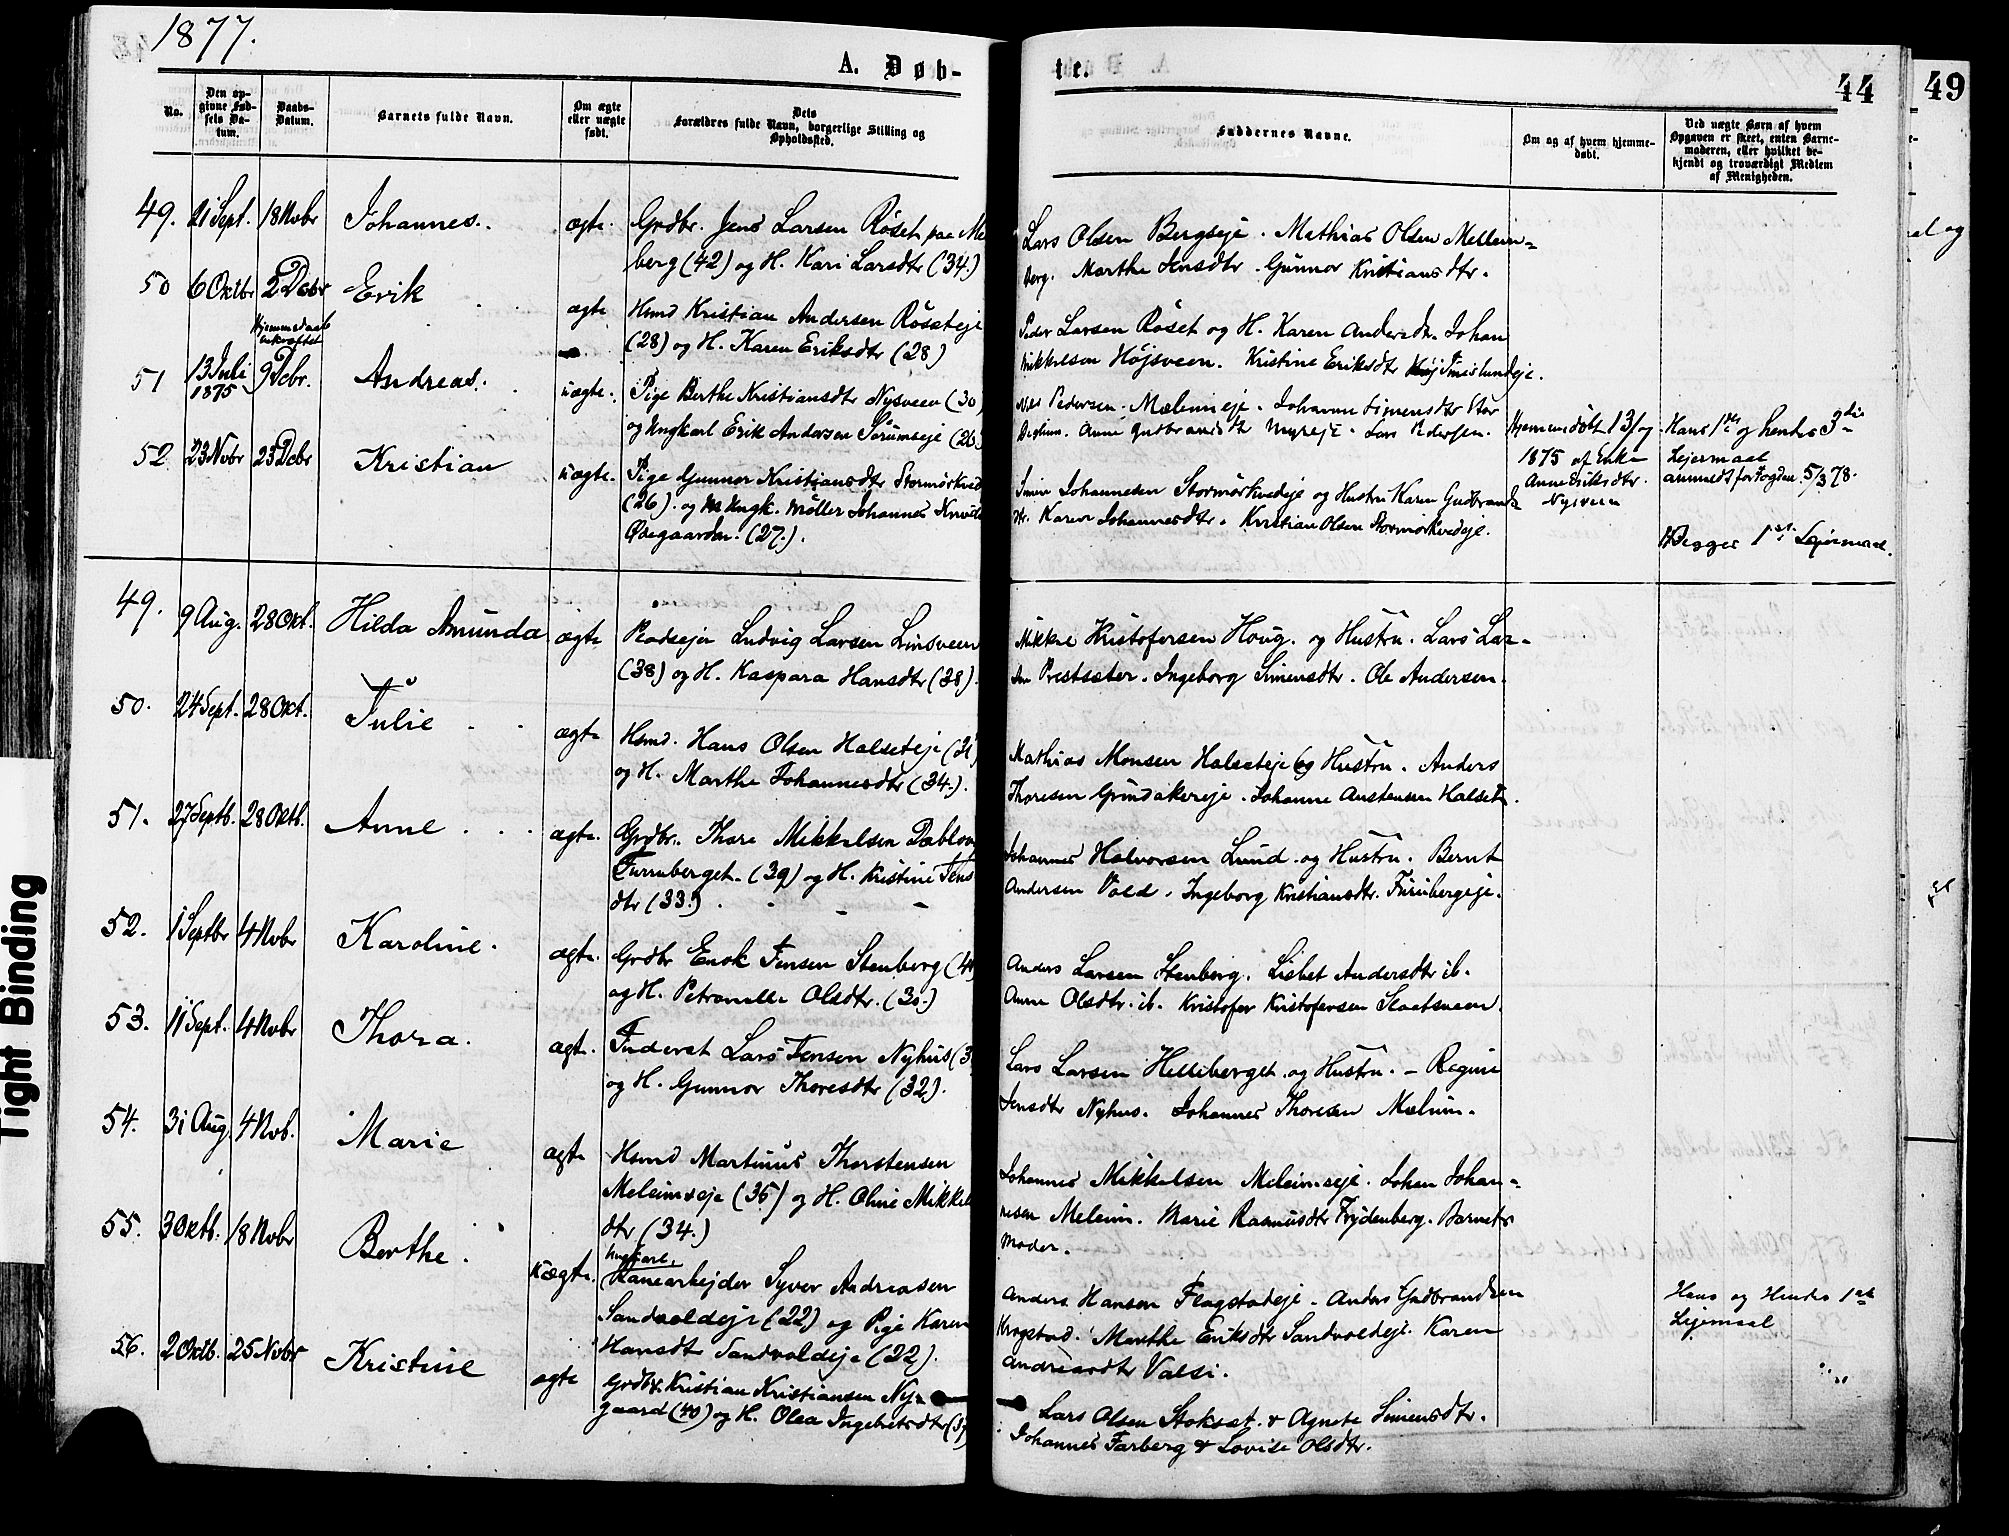 1877.
A. Døb-
te.
44
49
No.
Den op-
givne Fød-
sels Da-
tum.
Daabs-
Datum.
Barnets fulde Navn.
Om ægte
eller uægte
født.
Dets
Forældres fulde Navn, borgerlige Stilling og
Opholdssted.
Faddernes Navne.
Om og af hvem hjemme-
døbt.
Ved uægte Børn af hvem
Opgaven er skeet, enten Barne-
moderen, eller hvilket be-
kjendt og troværdigt Medlem
af Menigheden.
49. 21 Sept. 18 Novbr Johannes. ægte. Grdbr. Jens Larsen Røset paa Me
berg (42) og H. Kari Larsdtr (34.)
Lars Olsen Bergseje. Mathias Olsen Mellem-
berg. Marthe Jensdtr. Gunnor Kristiansdtr.
50 6 Oktbr 2 Decbr Erik ægte Hsmd Kristian Andersen Røseteje
(28) og H. Karen Eriksdtr (28)
Hjemmedaab
bekræftet
Peder Larsen Røset og H. Karen Andersdtr. Johan
Mikkelsen Højsveen. Kristine Eriksdtr Smislundeje.
51 13 Juli 1875 9 Decbr. Andreas. uægte. Pige Berthe Kristiansdtr Nysveen (30)
og Ungkarl Erik Andersen Sørumseje (26)
Nils Pedersen Mæhlumeje. Johanne Simensdtr Stor
Anne Gudbrandsdtr Myreje. Lars Pedersen.
Hjemmedøbt 13/
1875 af Enke
Anne Eriksdtr.
Nysveen
Hans 1ste og hendes 3die
Lejermaal
anmeldt for Fogden 5/3 78.
52 23 Novbr 23 Decbr Kristian uægte. Pige Gunnor Kristiansdtr Stormørkved
(26). og Ungk. Møller Johannes
Ødegaarden. (27.).
Simen Johannesen Stormørkvedeje og Hustru Karen Gudbrands
dtr. Karen Johannesdtr. Kristian Olsen Stormørkvedeje.
Begges 1ste Lejermaal.
49. 9 Aug. 28 Okt. Hilda Amunda ægte Pladsejer Ludvig Larsen Linsveen
(38) og H. Kaspara Hansdtr (38).
Mikkel Kristofersen Houg. og Hustru. Lars Lar-
sen Prestsæter. Ingeborg Simensdtr. Ole Andersen.
50. 24 Sept. 28 Okt. Julie ægte Hsmd. Hans Olsen Halseteje (31)
og H. Marthe Johannesdtr (34.).
Mathias Monsen Halseteje og Hustru. Anders
Thoresen Grindakereje. Johanne Austensen Halset.
51. 27 Septb. 28 Oktb. Anne ægte. Grdbr. Thore Mikkelsen Dablov
Furuberget. (39) og H. Kristine Jens
dtr (33.).
Johannes Halvorsen Lund og Hustru. Bernt
Andersen Vold. Ingeborg Kristiansdtr. Furubergeje.
52. 1 Septbr 4 Novbr Karoline. ægte. Grdbr Enok Jensen Stenberg (4
og H. Petronelle Olsdtr. (30.)
Anders Larsen Stenberg. Lisbet Andersdtr ib.
Anne Olsdtr. ib. Kristofer Kristofersen Slaatsveen.
53. 11 Sept. 4 Novbr Thora. ægte. Inderst Lars Jensen Nyhus (3
og H. Gunnor Thoresdtr (32).
Lars Larsen Helleberget og Hustru. - Regine
Jensdtr Nyhus. Johannes Thoresen Mælum.
54. 31 Aug 4 Nov. Marie ægte Hsmd Martinus Thorstensen
Melumseje (35) og H. Oline Mikkels
dtr (34.)
Johannes Mikkelsen Melumseje. Johan Johan-
nesen Melum. Marie Rasmusdtr Frydenberg. Barnets
Moder.
55. 3 Oktb. 18 Novbr Berthe. uægte. Ungkarl.
Banearbejder Syver Andreasen
Sandvoldeje (22) og Pige Karen
Hansdtr Sandvoldeje (22).
Anders Hansen Flagstadeje. Anders Gudbrandsen
Krogstad. Marthe Eriksdtr Sandvoldeje. Karen
Andreasdtr Valsi.
Hans og Hendes 1ste
Lejermaal
56. 2 Oktb. 25 Novbr Kristine ægte Grdbr. Kristian Kristiansen Ny-
gaard (40) og H. Olea Ingebretsdtr (3
Lars Olsen Stokset. & Agnete Simensdtr.
Johannes Farberg & Lovise Olsdtr.
Tight Binding